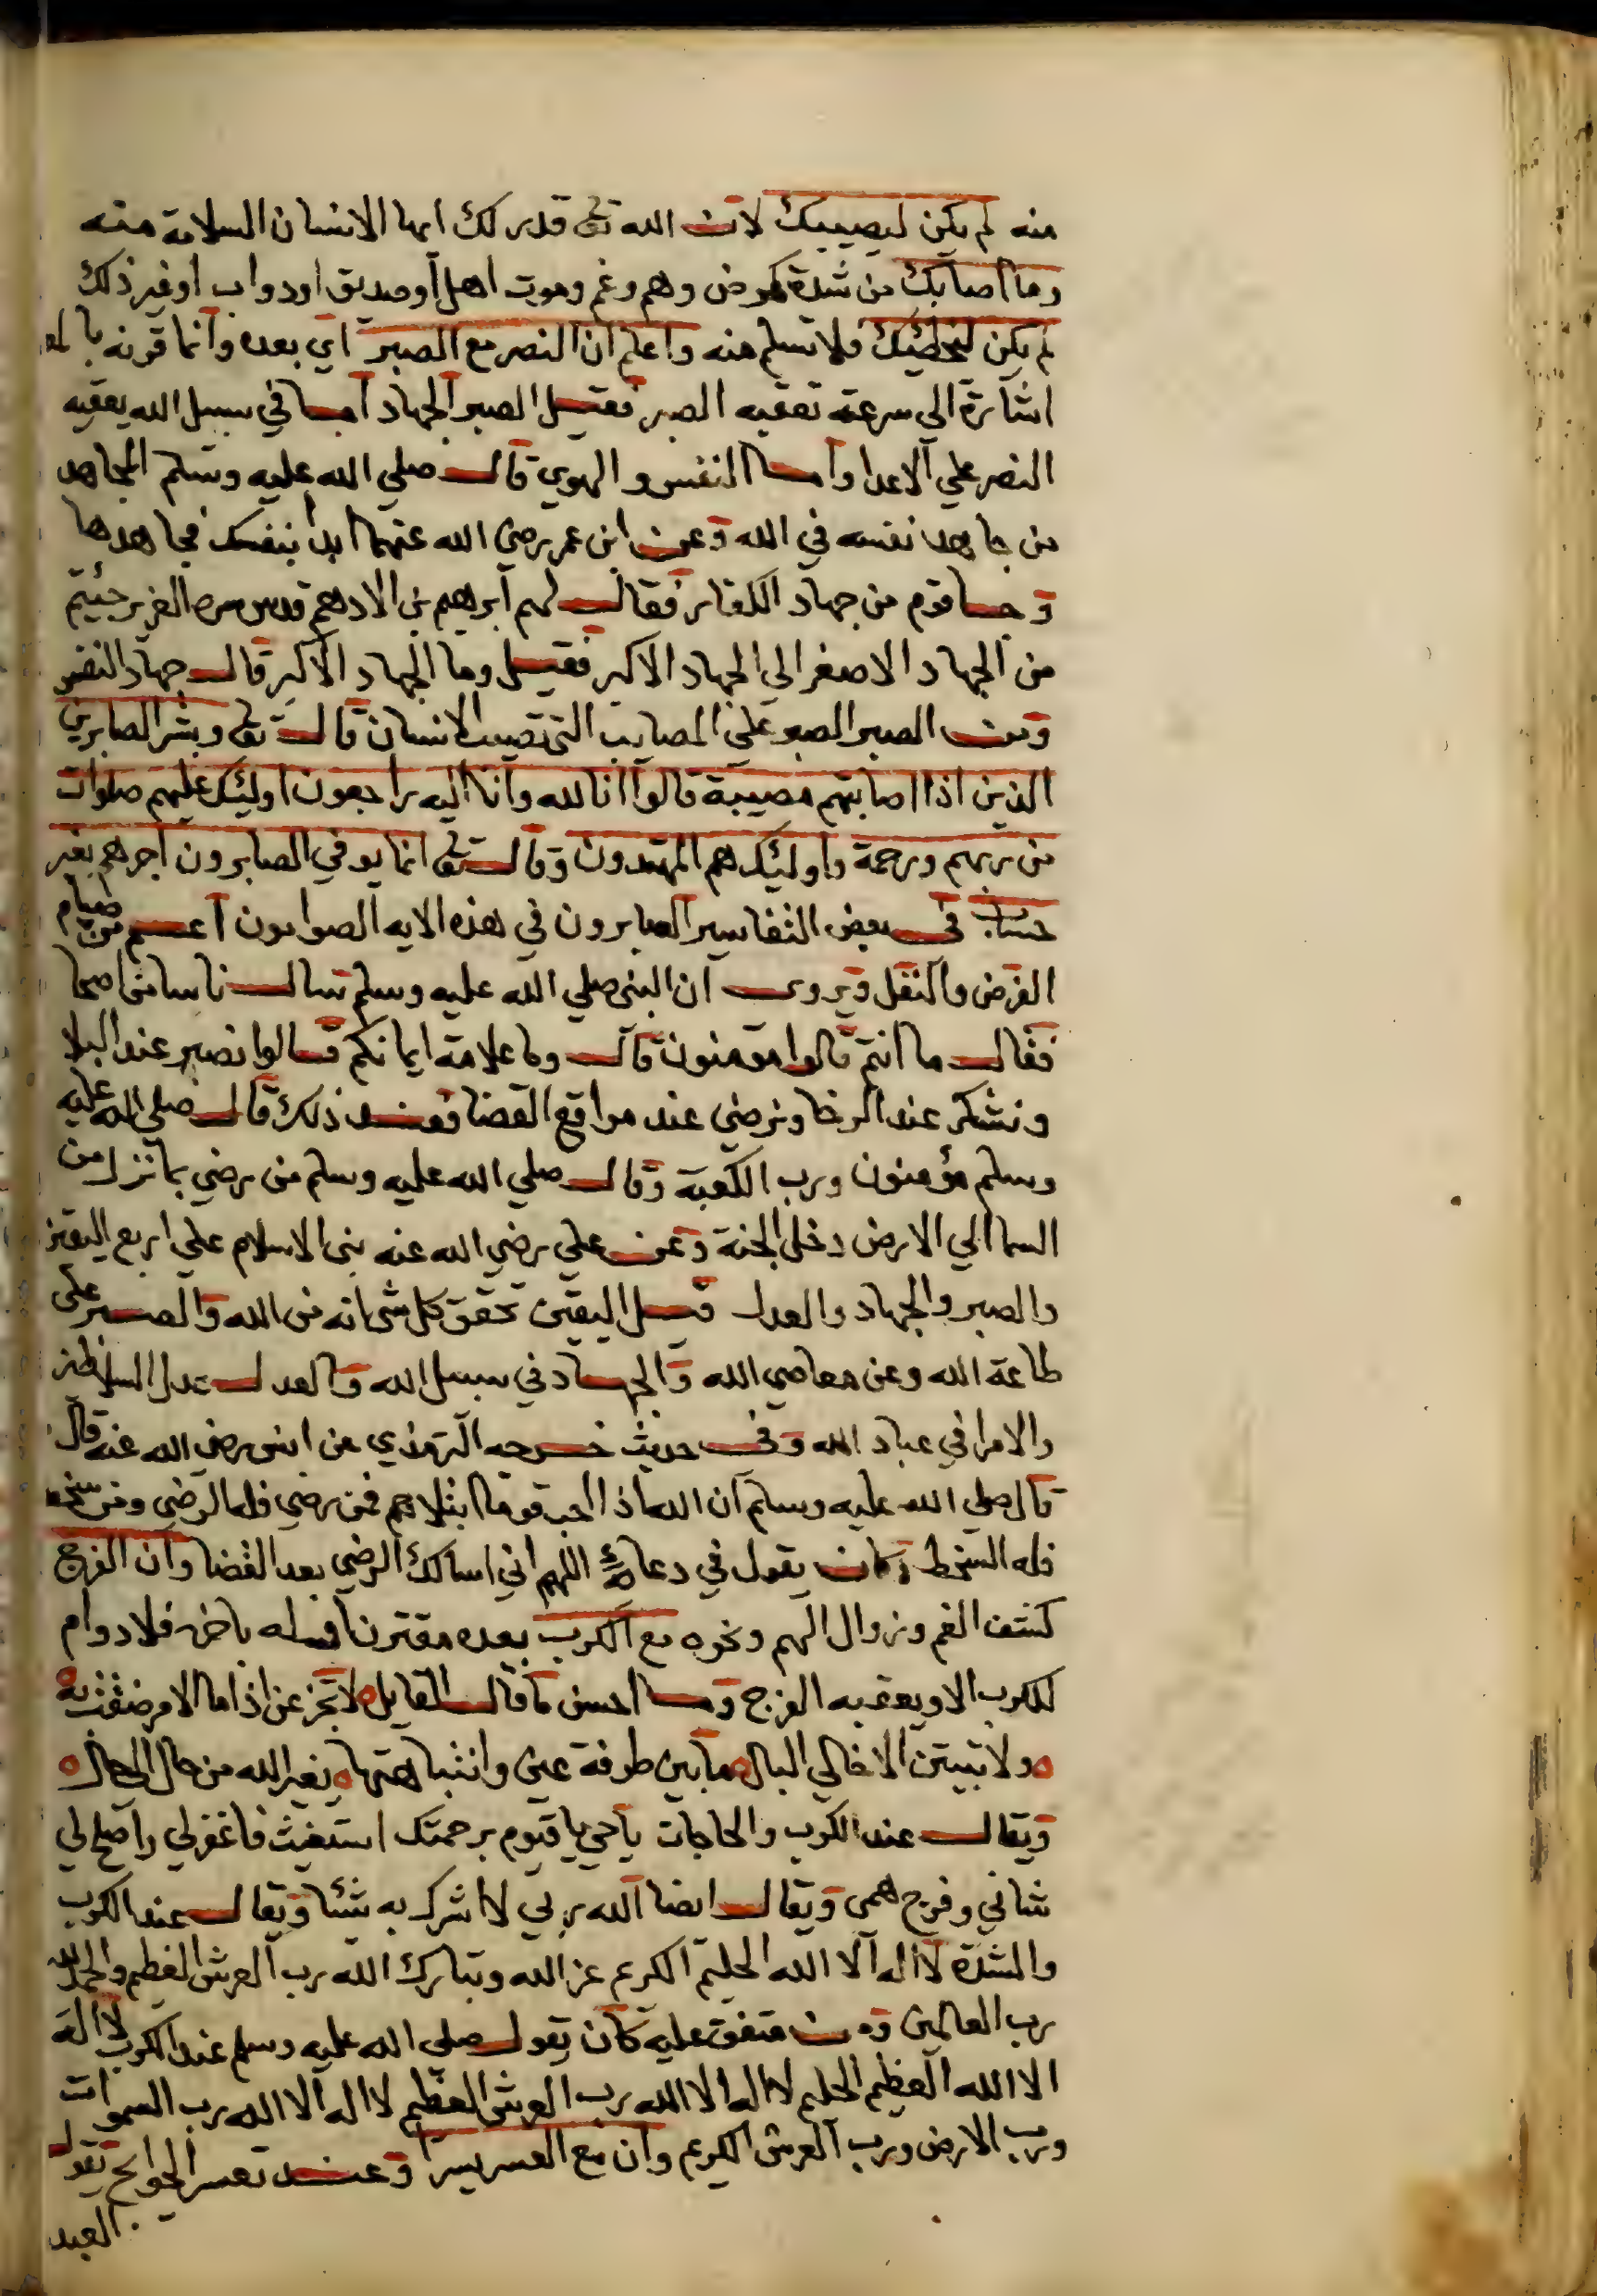 منه لم يكن ليصيبك لان الله تعالى قدر لك ايها الانسان السلامة منه
وما اصابك من شدة كمرض وهم وغم وموت اهل او صديق او دواب او غير ذلك
لم يكن ليخطئك فلا تسلم منه واعلم ان النصر مع الصبر اي بعده وانما قرنه بالمع
اشارة الي سرعة تعقبه الصبر فقيل الصبر الجهاد اما في سبيل الله يعقبه
النصر علي الاعدا واما النفس والهوي قال صلي الله عليه وسلم المجاهد
من جاهد نفسه في الله وعن ابن عمر رضي الله عنهما ابدأ بنفسك فجاهدها
وجا قوم من جهاد الكفار فقال لهم ابرهيم بن الادهم قدس سره العزيز جئتم
من الجهاد الاصغر الي الجهاد الاكبر فقيل وما الجهاد الاكبر قال جهاد النفس
ومن الصبر الصبر علي المصايب التي تصيب الانسان قال تعالى وبشر الصابرين
الذين اذا اصابتهم مصيبة قالوا انا لله وانا اليه راجعون اوليئك عليهم صلوات
من ربهم ورحمة واوليئك هم المهتدون وقال تعالى انما يوفي الصابرون اجرهم بغير
حساب في بعض التفاسير الصابرون في هذه الايه الصوامون اعم من صيام
الفرض والنفل ويروي ان النبي صلي الله عليه وسلم سال ناسا من اصحا
فقال ما انتم قالوا مومنون قال وما علامة ايمانكم قالوا نصبر عند البلا
ونشكر عند الرخا ونرضي عند مواقع القضا فعند ذلك قال صلي الله عليه
وسلم مؤمنون ورب الكعبة وقال صلي الله عليه وسلم من رضي بما نزل من
السما الي الارض دخل الجنة وعن علي رضي الله عنه بني الاسلام علي اربع اليقين
والصبر والجهاد والعدل قيل اليقين تحقق كل شي انه من الله والصبر علي
طاعة الله وعن معاصي الله والجهاد في سبيل الله والعدل عدل السلاطين
والامرا في عباد الله وفي حديث خرجه الترمذي عن انس رضي الله عنه قال
قال صلي الله عليه وسلم ان الله اذا احب قوما ابتلاهم فمن رضي فله الرضي ومن سخط
فله السخط وكان يقول في دعائه اللهم اني اسالك الرضي بعد القضا وان الفرج
كشف الغم وزوال الهم ونحوه مع الكرب بعده مقترنا فلا دوام
للكرب الا ويعقبه الفرج وما احسن ما قال القايل لا تجزعن اذا ما الامر ضقت به
ولا تبيتن الا خالي البال ما بين طرفة عين وانتباهتها يغير الله من حال الي حال
ويقال عند الكرب والحاجات يا حي يا قيوم برحمتك استغيث فاغفر لي واصلح لي
شاني وفرج همي ويقال ايضا الله ربي لا اشرك به شئا ويقال عند الكرب
والشدة لا اله الا الله الحليم الكريم عز الله وتبارك الله رب العرش العظيم والحمد لله
رب العالمين ومن متفق عليه كان يقول صلي الله عليه وسلم عند الكرب لا اله
الا الله العظيم الحليم لا اله الا الله رب العرش العظيم لا اله الا الله رب السموات
ورب الارض ورب العرش الكريم وان مع العسر يسرا وعند تعسر الحوايج يقول
العبد